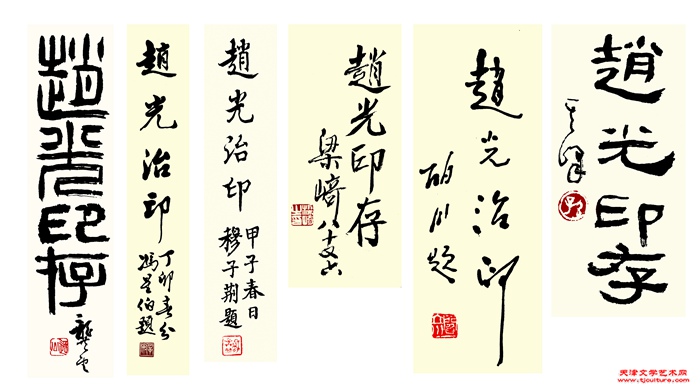 趙光印存
龔望
趙光治印
丁卯春分
馮星伯題
趙光治印
甲子春日
穆子荆題
趙光印存
梁崎八十又六
趙光治印
川題
趙光印存
天津文学艺术网
www.tjculture.com